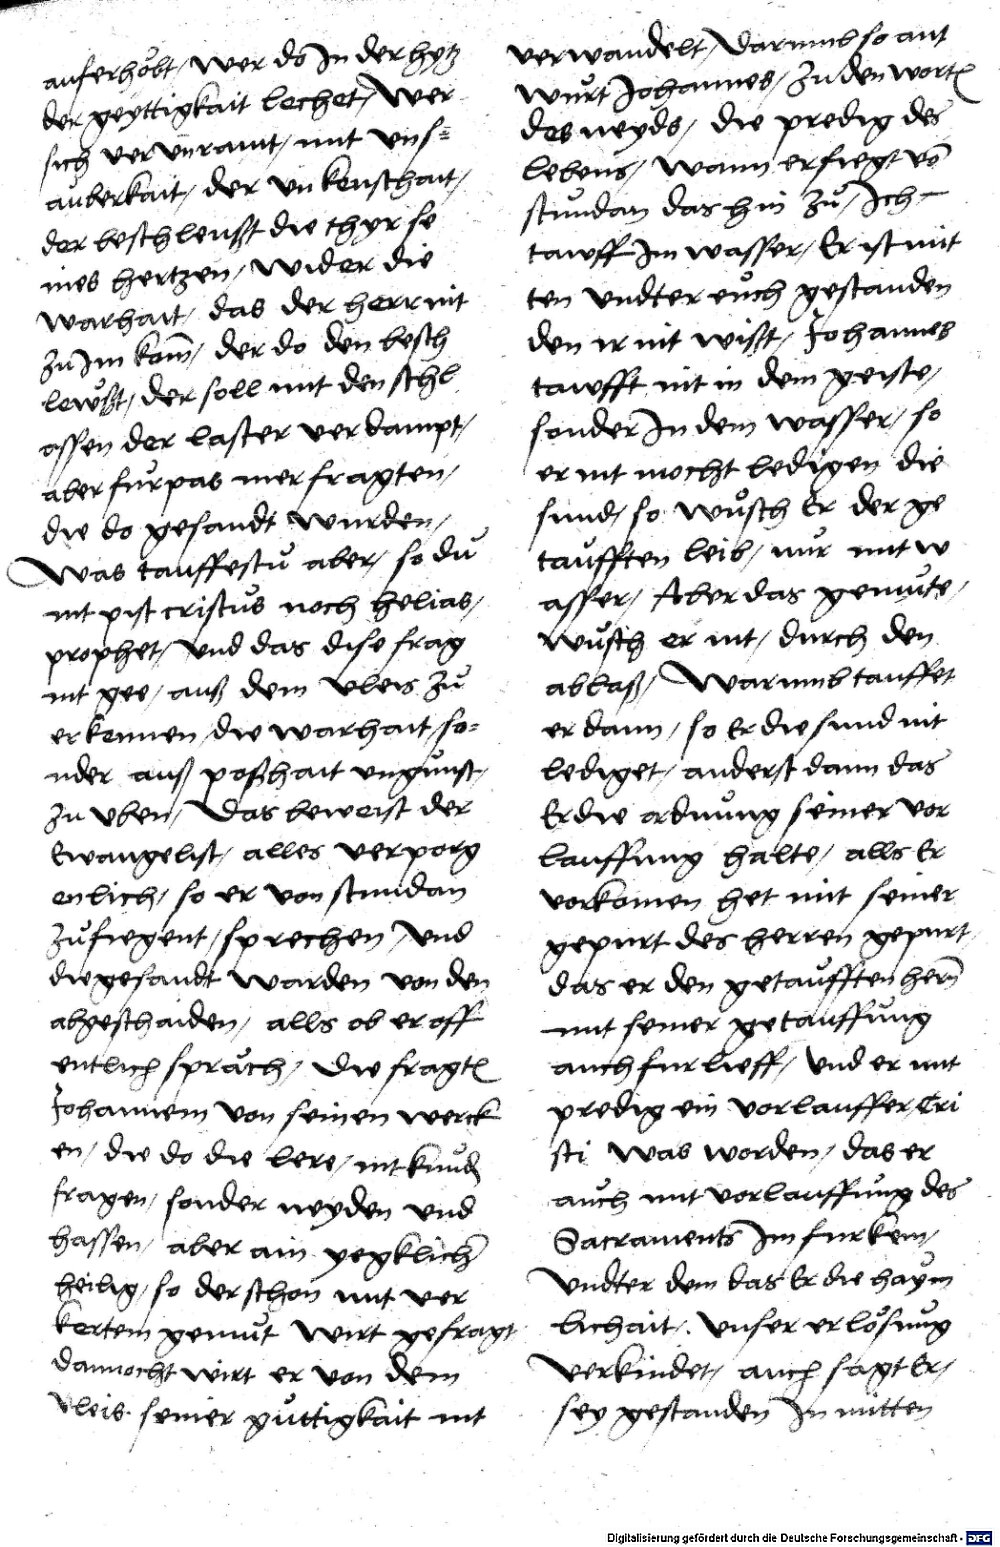 auferhöbt / wer do In der hytz
der geyttigkait lechet / Wer
sich verunramt / mit uns=
auberkait / der unkeuschait /
der beschleusst die thyr se
ines hertzen / wider die
warhait / das der herr nit
zu Im kom̄ / der do den besch
lewsst / der soll mit den schl
ossen der laster verdampt /
aber furpas mer fragten /
die do gesandt wurden /
Was tauffestu aber / so du
nit pist cristus noch helias /
prophet / Und das dise frag
nit gee / auß dem vleis zu
erkennen / die warhait / so=
nder auß poßhait ungunst /
zu uben / Das beweist der
Ewangelist / alles verporg
enlich / so er von stundan
zufuegent / sprechen / Und
die gesandt warden von den
abgeschaiden / alls ob er off
entlich sprach / Die fragt
Johannem von seinen werck
en / die do die lere / nit kund
fragen / sonder neyden und
hassen / aber ain yegklich
heilig / so der schon mit ver
kertem gemut wirt gefragt
dannocht wirt er von dem
vleis seiner guttigkait nit
verwandelt / Darumb so ant
wurt Johannes / zu den wort
des neyds / die predig des
lebens / wann er fuegt vō
stundan das hin zu / Ich
tawff Im wasser / Er ist mit
ten undter euch gestanden
den ir nit wisst / Johannes
tawfft nit in dem geiste /
sonder In dem wasser / so
er nit mocht ledigen die
sund / so wusch Er der ge
taufften leib / nur mit w
asser / Aber das gemute /
wusch er nit / durch den
ablaß / Warumb tauffet
er dann / so Er die sund nit
lediget / anderst dann das
Er die ordnung seiner vor
lauffung halte / alls Er
vorkomen het mit seiner
gepurt des herren gepurt /
das er den getaufften hern̄
mit seiner getauffung
auch furlieff / Und er mit
predig ein vorlauffer Cri
sti was worden / das er
auch mit vorlauffung des
Sacraments Im furkem /
Undter dem das Er die haym
lichait / unser erlösung
verkindet / auch sagt Er /
sey gestanden In mitten
Digitalisierung gefördert durch die Deutsche Forschungsgemeinschaft - DFG